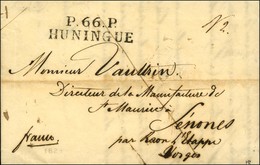 P.66.P.
HUNINGUE
12.
Monsieur Vaultrin
Directeur de la Manufacture de
St Maurice à
Senones
franco
par Raon l'Etappe
Vosges